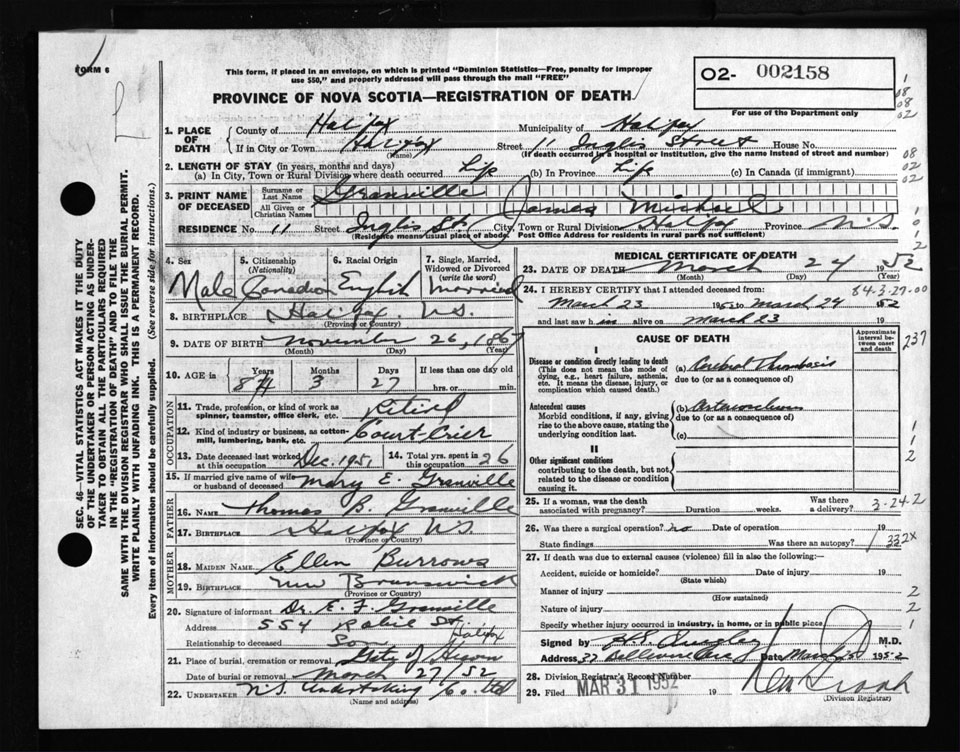 FORM 6
This form, if placed in an envelope, on which is printed "Dominion Statistics—Free, penalty for improper
use $50," and properly addressed will pass through the mail "FREE"
O2- 002158
PROVINCE OF NOVA SCOTIA—REGISTRATION OF DEATH
For use of the Department only
1. PLACE OF DEATH { County of Halifax Municipality of Halifax
If in City or Town Halifax Street 11 Inglis Street House No.
(Name) (If death occurred in a hospital or institution, give the name instead of street and number)
2. LENGTH OF STAY (in years, months and days)
(a) In City, Town or Rural Division where death occurred Life (b) In Province Life (c) In Canada (if immigrant)
3. PRINT NAME OF DECEASED { Surname or Last Name Granville
All Given or Christian Names James Michael
RESIDENCE No. 11 Street Inglis St. City, Town or Rural Division Halifax Province N.S.
(Residence means usual place of abode. Post Office Address for residents in rural parts not sufficient)
4. Sex 5. Citizenship (Nationality) 6. Racial Origin 7. Single, Married, Widowed or Divorced (write the word)
Male Canadian English Married
8. BIRTHPLACE Halifax. N.S.
(Province or Country)
9. DATE OF BIRTH November 26, 186
(Month) (Day) (Year)
10. AGE in { Years Months Days If less than one day old
3 27 hrs. or min.
OCCUPATION
11. Trade, profession, or kind of work as spinner, teamster, office clerk, etc. Retired
12. Kind of industry or business, as cotton-mill, lumbering, bank, etc. Court Crier
13. Date deceased last worked at this occupation Dec. 1951 14. Total yrs. spent in this occupation 26
15. If married give name of wife or husband of deceased Mary E. Granville
FATHER
16. NAME Thomas B. Granville
17. BIRTHPLACE Halifax N.S.
(Province or Country)
MOTHER
18. MAIDEN NAME Ellen Burrows
19. BIRTHPLACE New Brunswick
(Province or Country)
20. Signature of informant Dr. E. F. Granville
Address 554 Robie St Halifax
Relationship to deceased Son
21. Place of burial, cremation or removal Gate of Heaven
Date of burial or removal March 27/52
22. UNDERTAKER N.S. Undertaking Co. Ltd
(Name and address)
MEDICAL CERTIFICATE OF DEATH
23. DATE OF DEATH March 24 1952
(Month) (Day)
24. I HEREBY CERTIFY that I attended deceased from: 84-3-27-00
March 23 195 to March 24 1952
and last saw h im alive on March 23
CAUSE OF DEATH
Approximate interval between onset and death
237
I
Disease or condition directly leading to death
(This does not mean the mode of dying, e.g., heart failure, asthenia, etc. It means the disease, injury, or complication which caused death.)
(a) Cerebral Thrombosis
due to (or as a consequence of)
Antecedent causes
Morbid conditions, if any, giving rise to the above cause, stating the underlying condition last.
(b)
due to (or as a consequence of)
(c)
II
Other significant conditions
contributing to the death, but not related to the disease or condition causing it.
25. If a woman, was the death associated with pregnancy? Duration weeks. Was there a delivery?
3-24-2
26. Was there a surgical operation? no Date of operation 19
State findings Was there an autopsy?
332x
27. If death was due to external causes (violence) fill in also the following:—
Accident, suicide or homicide? Date of injury 19
(State which)
Manner of injury
(How sustained)
Nature of injury
Specify whether injury occurred in industry, in home, or in public place
Signed by M.D.
Address 37 Date March 1952
28. Division Registrar's Record Number
29. Filed MAR 31 1952 19
(Division Registrar)
SEC. 46—VITAL STATISTICS ACT MAKES IT THE DUTY
OF THE UNDERTAKER OR PERSON ACTING AS UNDER-
TAKER TO OBTAIN ALL THE PARTICULARS REQUIRED
IN THE "REGISTRATION OF DEATH" AND TO FILE THE
SAME WITH THE DIVISION REGISTRAR WHO SHALL ISSUE THE BURIAL PERMIT.
WRITE PLAINLY WITH UNFADING INK. THIS IS A PERMANENT RECORD.
Every item of information should be carefully supplied. (See reverse side for instructions.)